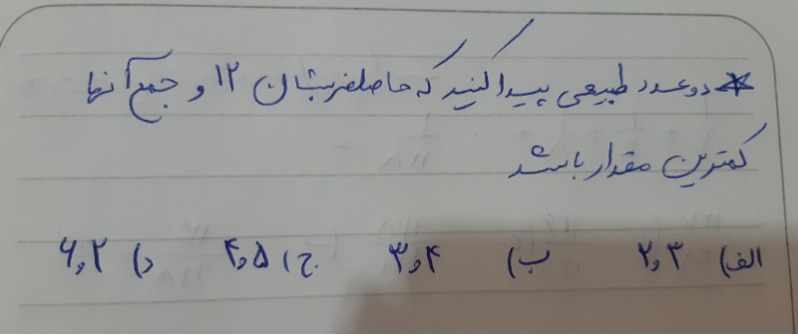 * دو عدد طبیعی پیدا کنید که حاصلضربشان ۱۲ و جمع آنها
کمترین مقدار باشد
الف) ۲ و ۳ ب) ۳ و ۴ ج) ۴ و ۵ د) ۶ و ۲